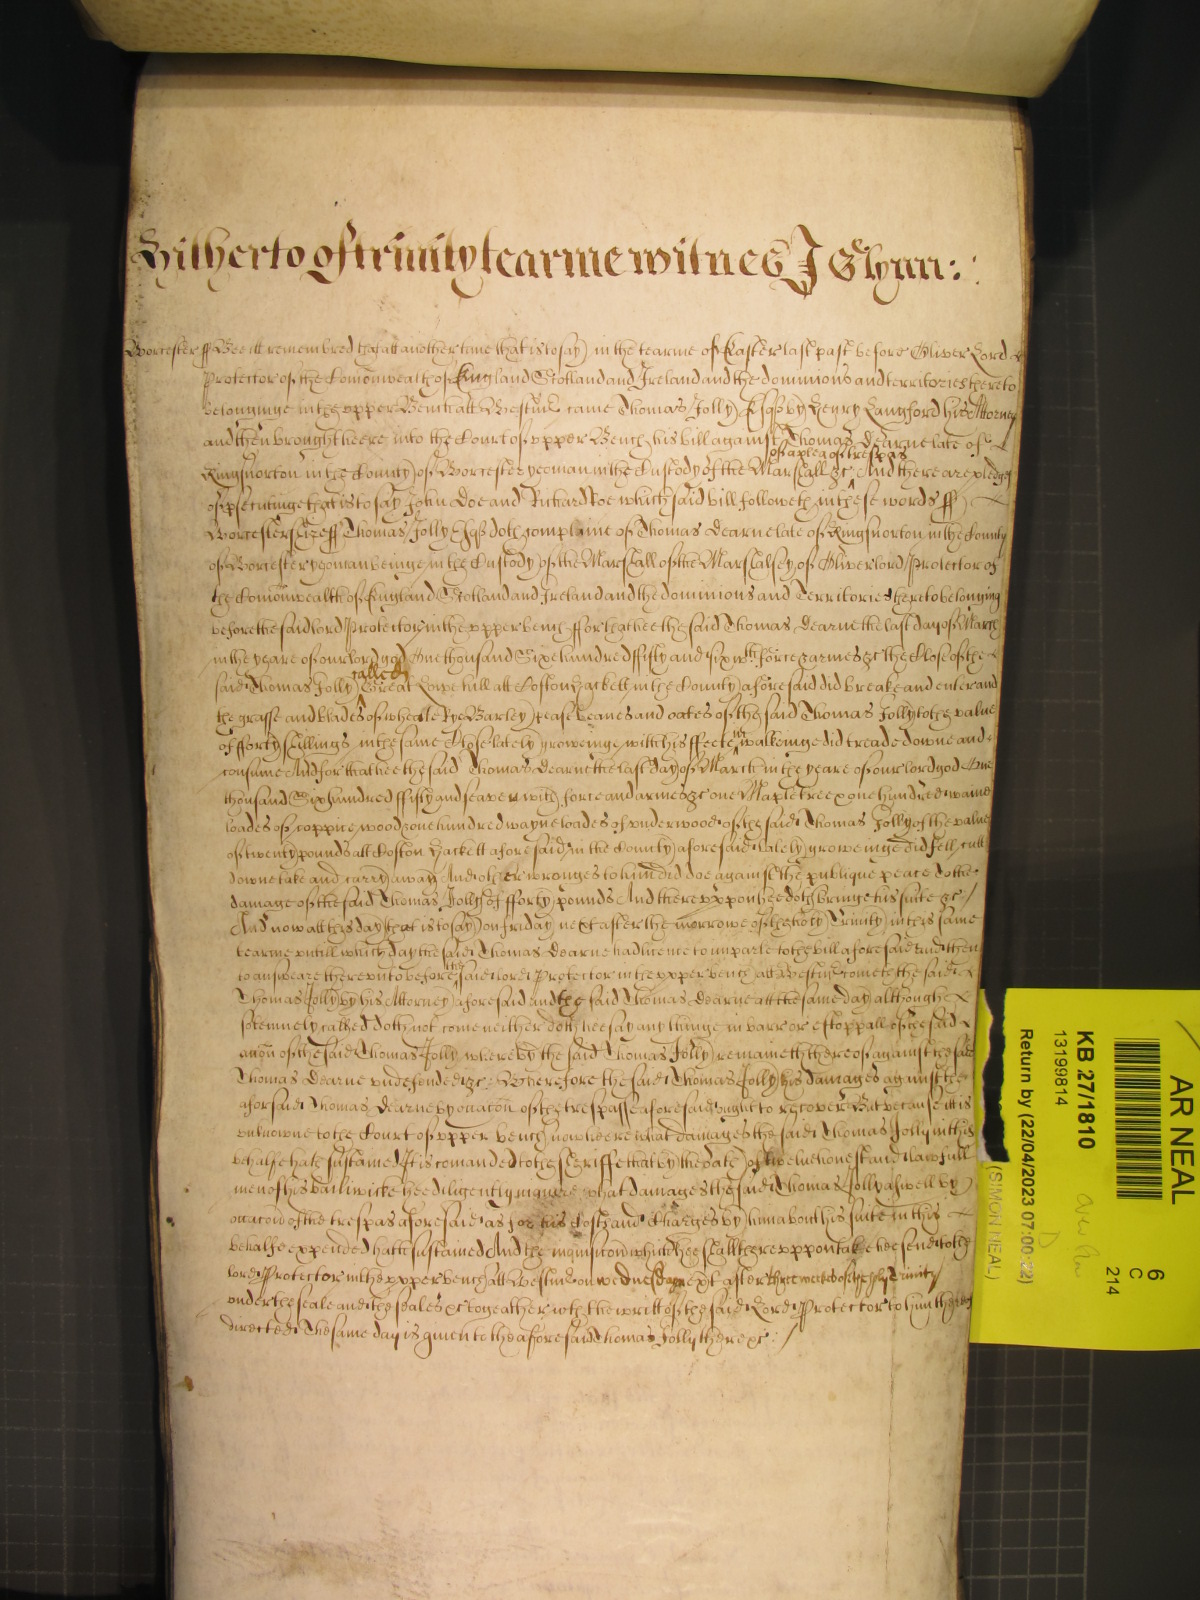 Hitherto of trinity tearme witnes J Glynn:
Worcester ss Bee itt remembred that att another time that is to say in the tearme of Easter last past before Oliver Lord
Protector of the Comonwealth of England Scotland and Ireland and the dominions and territories thereto
belonginge in the upper Bench att Westmr came Thomas Jolly Esqr by Henry Langford his Attorney
and then brought heere into the Court of upper Bench his bill against Thomas Dearne late of
of a plea of trespas
Kingsnorton in the County of Worcester yeoman in the Custody of the Marshall &c And there are pledges
of psecutinge that is to say John Doe and Richard Roe which said bill followeth in these words ss
Worcestershire ss Thomas Jolly Esqr doth complaine of Thomas Dearne late of Kingsnorton in the County
of Worcester yeoman beinge in the Custody of the Marshall of the Marshalsey of Oliver lord Protector of
the Comonwealth of England Scotland and Ireland and the dominions and Territories thereto belonging
before the said lord Protector in the upper bench ffor that hee the said Thomas Dearne the last day of March
in the yeare of our lord god One thousand Sixe hundred ffifty and six wth force & armes &c the Close of the
called
said Thomas Jolly Great Lowe hill att Coston Hackett in the County aforesaid did breake and enter and
the grasse and blades of wheate Rye Barley pease beanes and oates of the said Thomas Jolly to the value
of fforty shillings in the same Close lately groweinge with his ffeete in walkeinge did treade downe and
consume And for that hee the said Thomas Dearne the last day of March in the yeare of our lord god One
thousand Six hundred ffifty and seaven with force and armes &c one Mapletree & one hundred waine
loades of coppice wood & one hundred wayne loades of underwood of the said Thomas Jolly of the value
of twenty pounds att Coston Hackett aforesaid in the County aforesaid lately groweinge did fell cutt
downe take and carry away And other wronges to him did doe against the publique peace to the
damage of the said Thomas Jolly of fforty pounds And thereuppon hee doth bringe his suite &c /
And now att this day that is to say on friday next after the morrowe of the holy Trinity in this same
tearme untill which day the said Thomas Dearne had licence to imparle to the bill aforesaid and then
to answeare thereunto before the said lord Protector in the upper bench att Westmr cometh the said
Thomas Jolly by his Attorney aforesaid and the said Thomas Dearne att the same day although
solemnely called doth not come neither doth hee say any thinge in barr or estoppall of the said
accon of the said Thomas Jolly whereby the said Thomas Jolly remaineth thereof against the said
Thomas Dearne undefended &c: Wherefore the said Thomas Jolly his damages against the
aforsaid Thomas Dearne by occacon of the trespasse aforesaid ought to recover But because itt is
unknowne to the Court of upper bench now heere what damages the said Thomas Jolly in this
behalfe hath sustained It is comanded to the sheriffe that by the oath of twelve honest and lawfull
men of his bailiwicke hee diligently inquire what damages the said Thomas Jolly aswell by
occacon of the trespas aforesaid as for his Costs and Charges by him about his suite in this
behalfe expended hath sustained And the inquisicon which hee shall thereuppon take hee send to the
lord Protector in the upper bench att Westmr on wednesday next after three weekes of the holy Trinity
under the seale and the seales &c togeather wth the writt of the said Lord Protector to him thereof
directed The same day is given to the aforesaid Thomas Jolly there &c: /
AR NEAL
KB 27/1810
13199814
Return by (22/04/2023 07:00:22)
(SIMON NEAL)
6
C
214